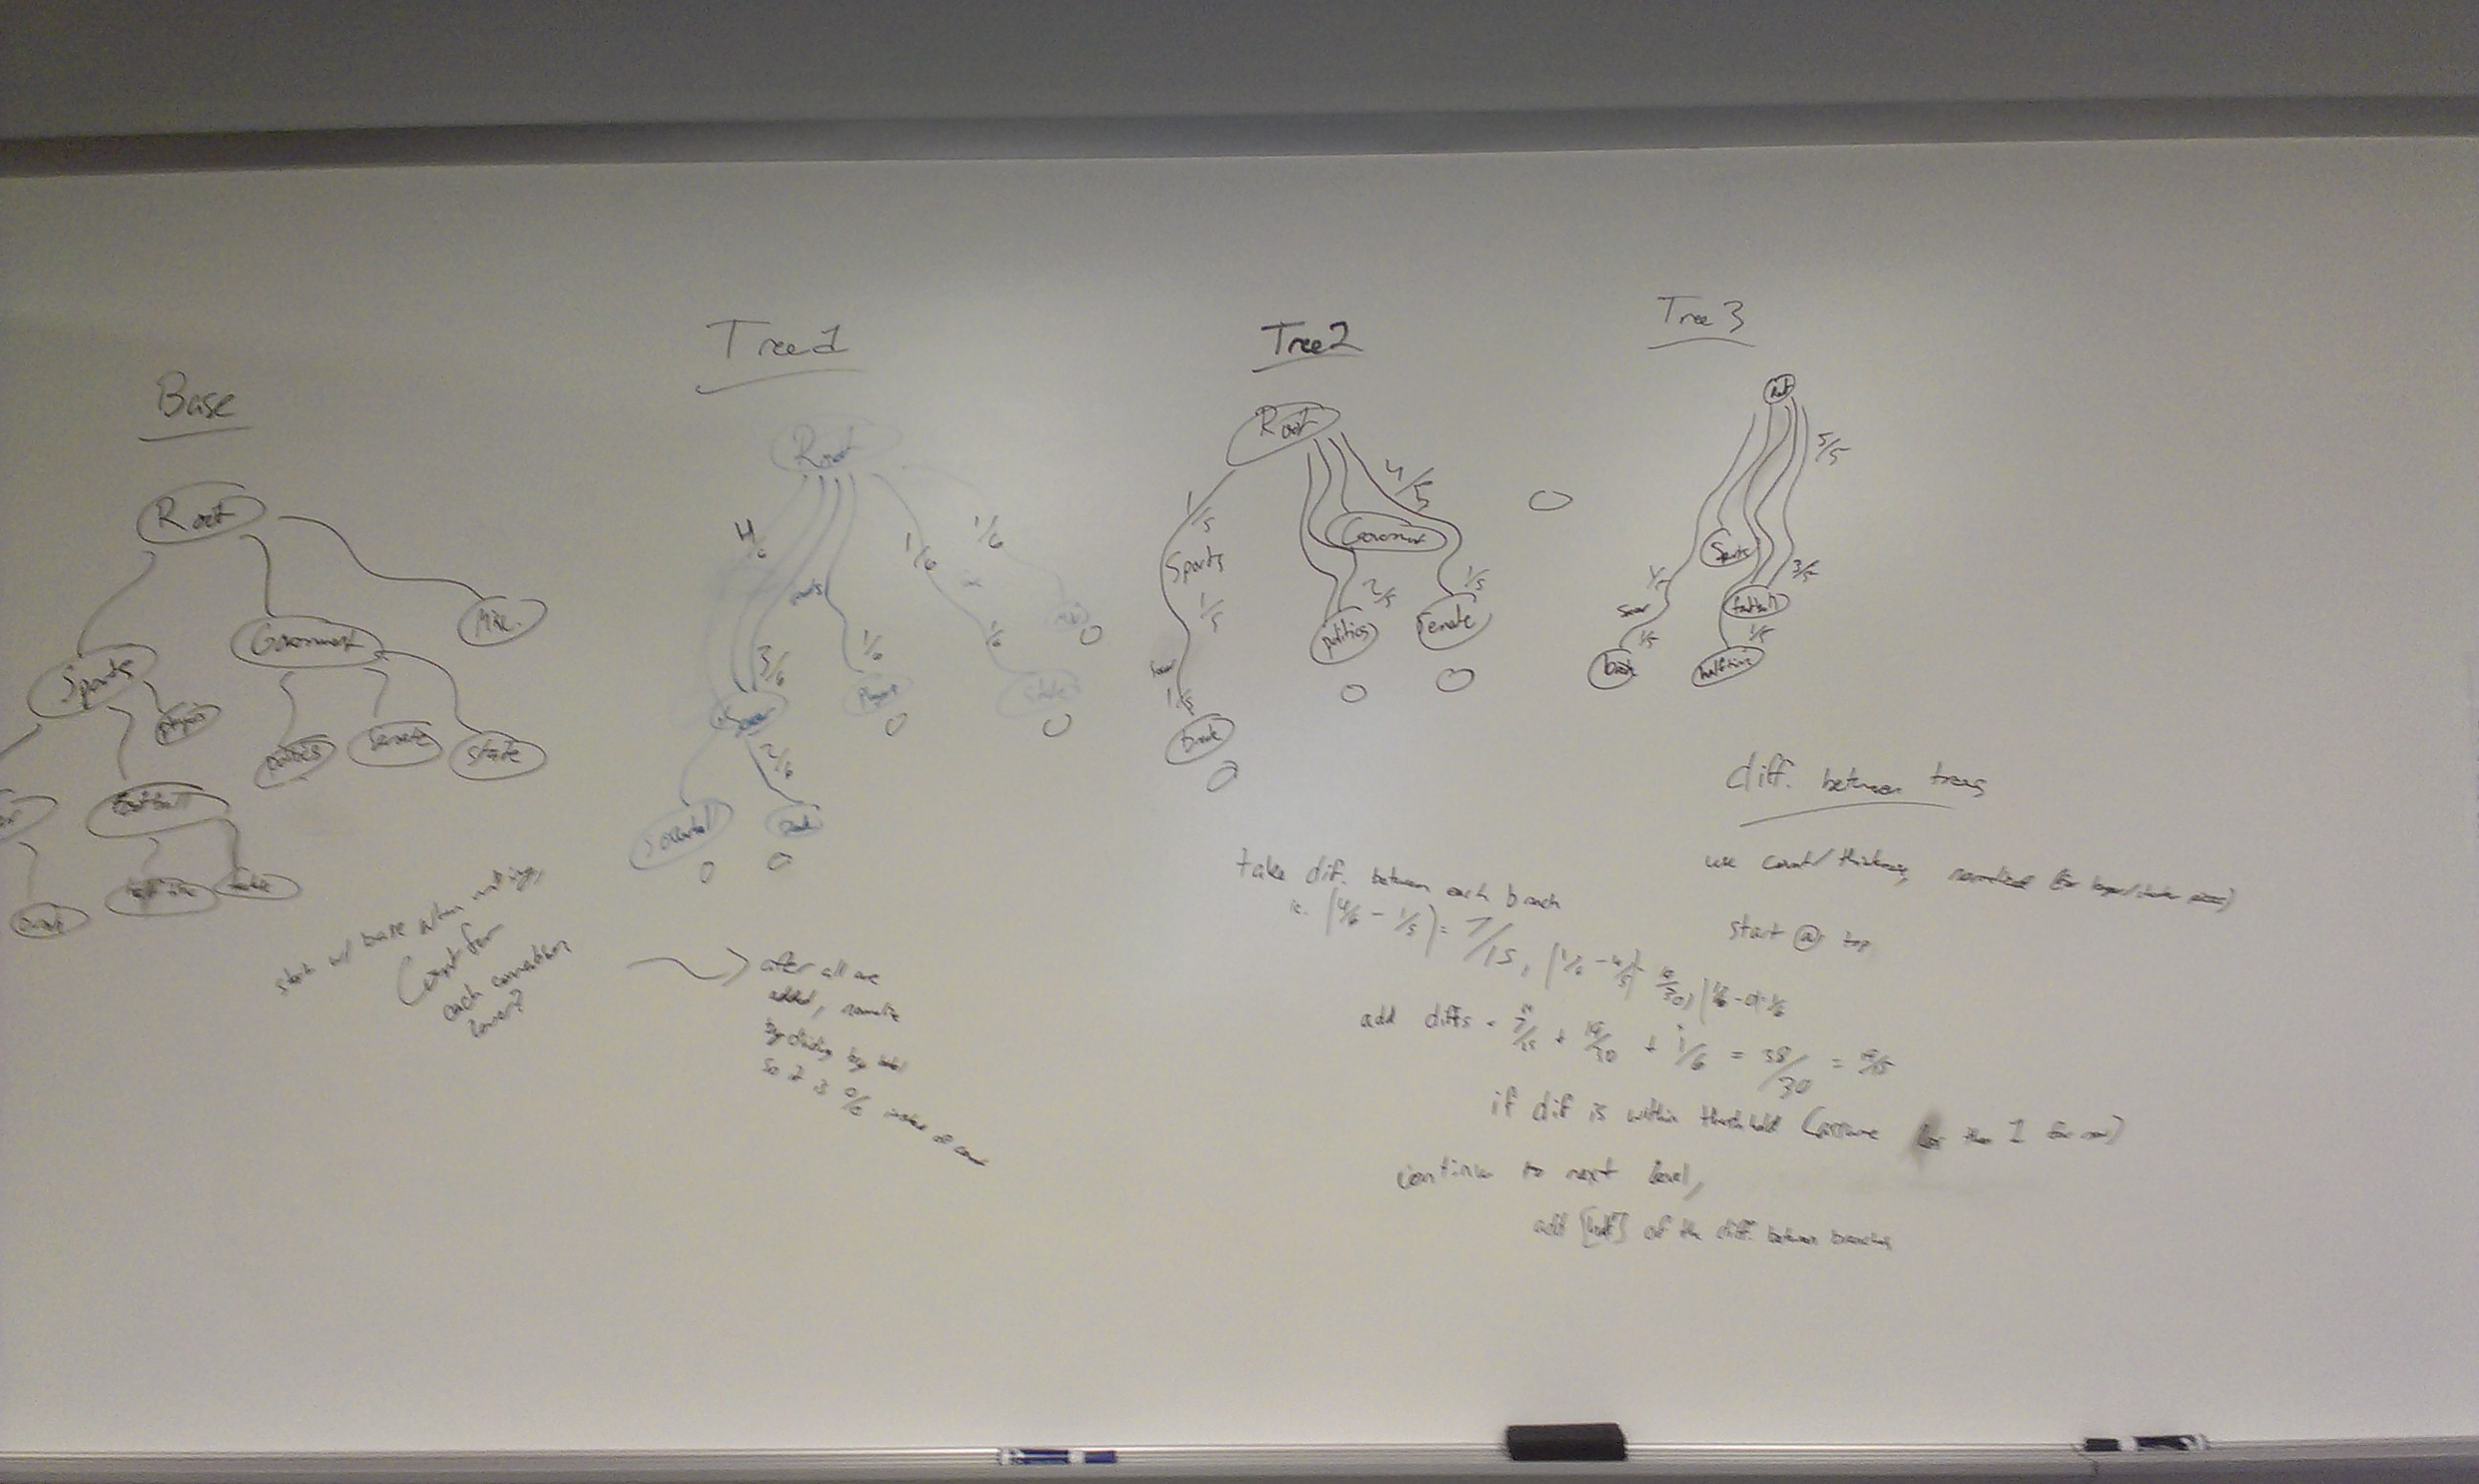 Base
Root
Sports
Government
Misc.
players
politics
Senate
State
football
half time
start w/ base when making,
Count for
each connection
Tree1
Root
4/6
1/6
1/6
sports
3/6
1/6
1/6
Soccer
player
state
2/6
Soccerball
after all are
added, normalize
by dividing by total
so it is % instead of count
Tree2
Root
1/5
4/5
Sports
Government
1/5
2/5
1/5
politics
Senate
1/5
Tree 3
Root
5/5
Sports
1/5
3/5
football
1/5
1/5
halftime
diff. between trees
use count/thickness, normalized
start @ top
take dif. between each branch
ie. |4/6 - 1/5| = 7/15, |1/6 - 4/5|
add diffs = 7/15 + 19/30 + 1/6 = 38/30
if dif is within threshold (assume less than 1 for now)
continue to next level,
add [half] of the diff. between branches